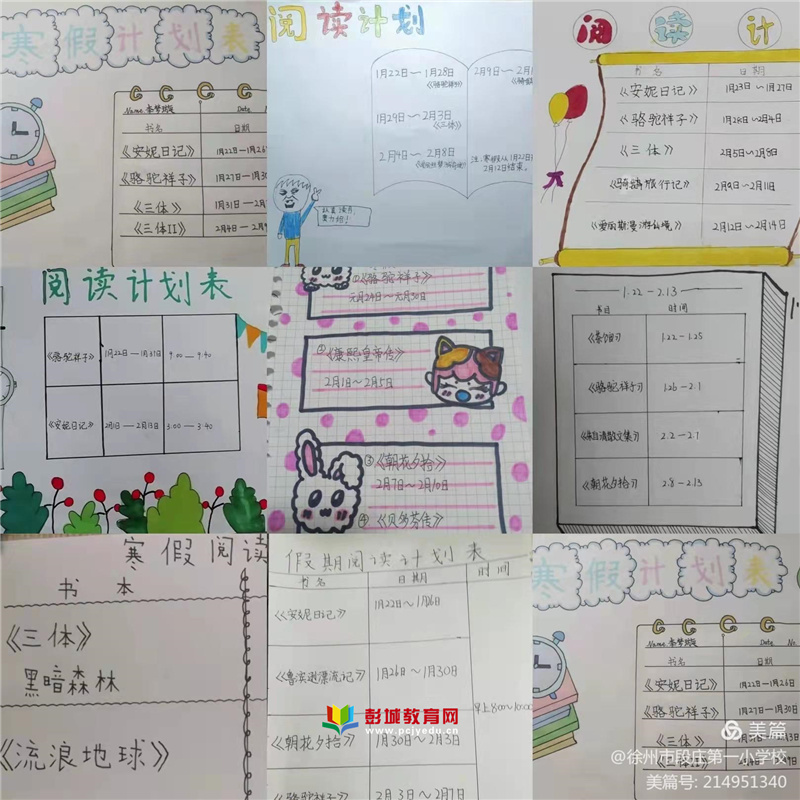 寒假计划表
Name 李梦璇 Date
书名 日期
《安妮日记》 1月22日—1月26
《骆驼祥子》 1月27日—1月30
《三体》 1月31日—2月
《三体II》 2月4日—2月
阅读计划
1月22日～1月28日
《骆驼祥子》
1月29日～2月3日
《三体》
2月4日～2月8日
2月9日～2月1
注：寒假从1月22日
2月12日结束。
认真读书，
阅读计
书名 日期
《安妮日记》 1月23日～1月27日
《骆驼祥子》 1月28日～2月4日
《三体》 2月5日～2月8日
《骑鹅旅行记》 2月9日～2月11日
《爱丽斯漫游仙境》 2月12日～2月14日
阅读计划表
《骆驼祥子》 1月22日—1月31日 9:00—9:40
《安妮日记》 2月1日—2月13日 3:00—3:40
①《骆驼祥子》
元月24日～元月30日
②《康熙皇帝传》
2月1日～2月5日
③《朝花夕拾》
2月7日～2月10日
④《贝多芬传》
1.22－2.13
书目 时间
《茶馆》 1.22－1.25
《骆驼祥子》 1.26－2.1
《朱自清散文集》 2.2－2.7
《朝花夕拾》 2.8－2.13
寒假阅读
书本
《三体》
黑暗森林
《流浪地球》
假期阅读计划表
书名 日期 时间
《安妮日记》 1月22日～1月26日
《鲁滨逊漂流记》 1月26日～1月30日
早上8:00～10:00
《朝花夕拾》 1月30日～2月3日
《骆驼祥子》 2月3日～2月7日
彭城教育网
www.pcjyedu.cn
寒假计划表
Name 李梦璇 Date No.
书名 日期
《安妮日记》 1月22日—1月26日
《骆驼祥子》 1月27日—1月30日
《三体》
美篇
@徐州市段庄第一小学校
美篇号: 214951340